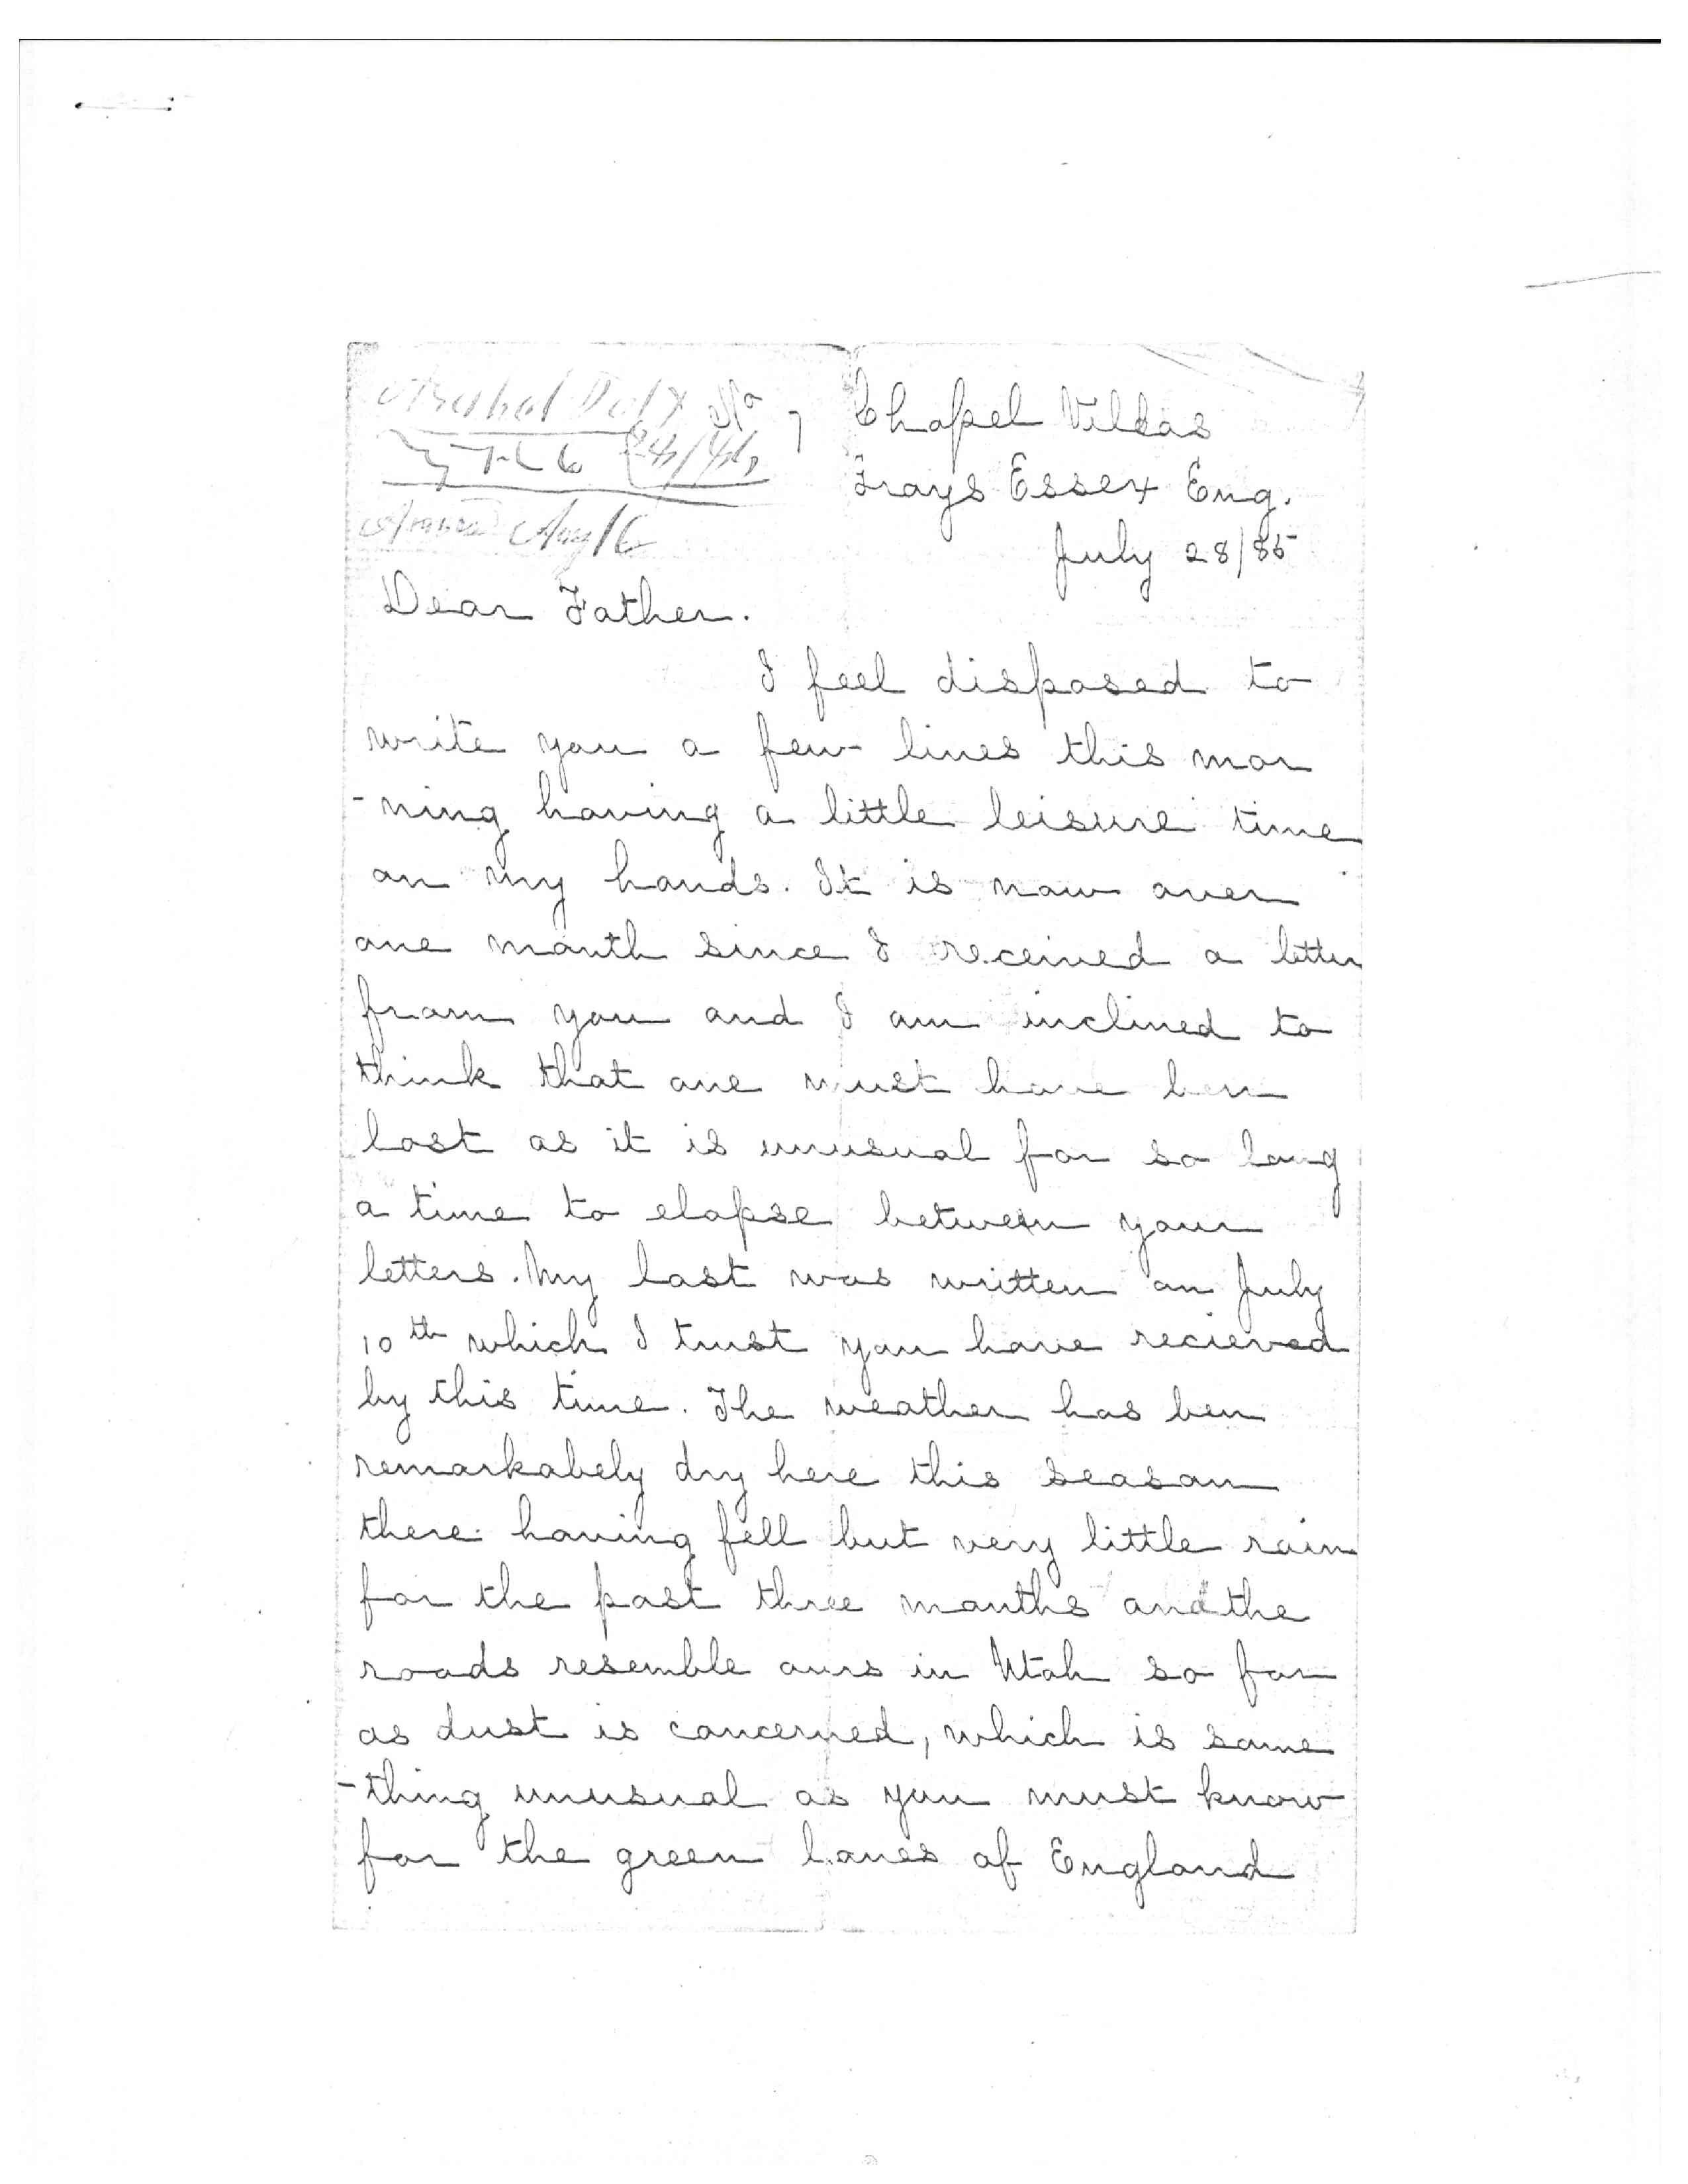 No 7 Chapel Villas
Grays Essex Eng.
July 28/85
Aug 16
Dear Father.
I feel disposed to
write you a few lines this mor
-ning having a little leisure time
on my hands. It is now over
one month since I received a letter
from you and I am inclined to
think that one must have ben
lost as it is unusual for so long
a time to elapse between your
letters. My last was written on July
10th which I trust you have recieved
by this time. The weather has ben
remarkabely dry here this season
there having fell but very little rain
for the past three months and the
roads resemble ours in Utah so far
as dust is concerned, which is some
-thing unusual as you must know
for the green lanes of England